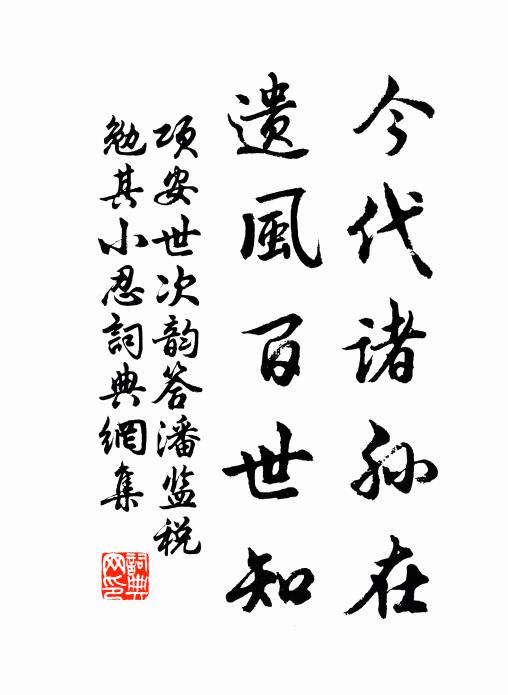 今代诸孙在
遗風百世知
项安世次韵答潘监税
勉其小忍詞典網集
詞典
网印